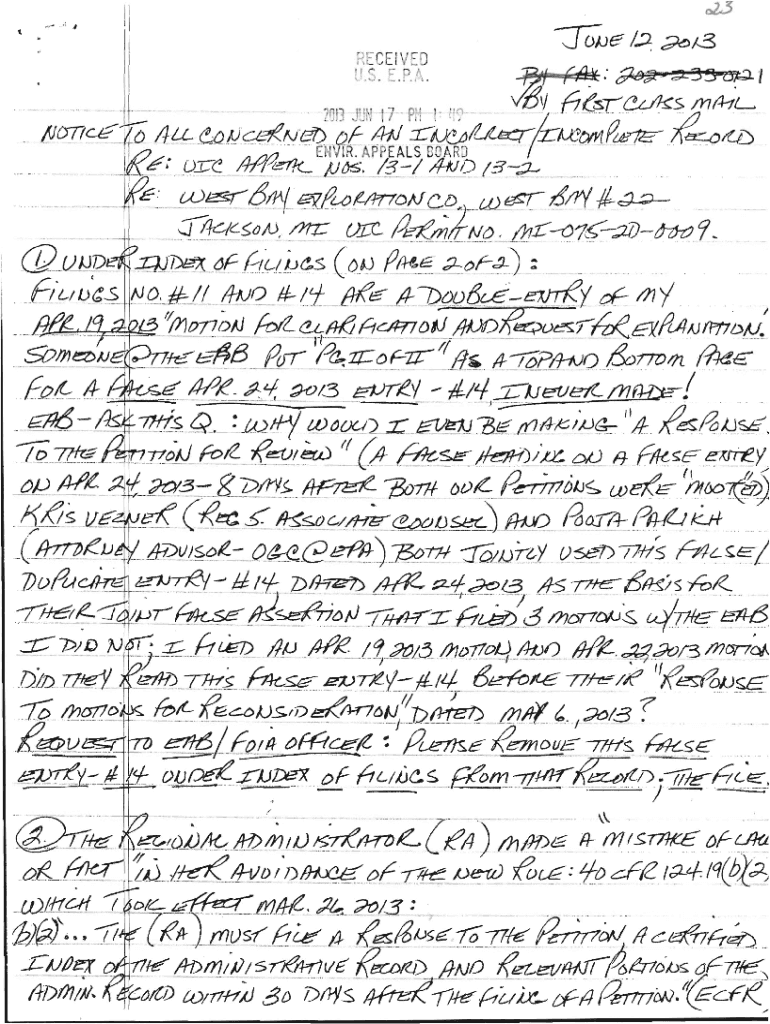 23
JUNE 12, 2013
RECEIVED
U.S. E.P.A.
BY FAX: 202-233-0121
√BY FIRST CLASS MAIL
2013 JUN 17 PM 1:49
NOTICE TO ALL CONCERNED OF AN INCORRECT/INCOMPLETE RECORD
ENVIR. APPEALS BOARD
RE: UIC APPEAL NOS. 13-1 AND 13-2
RE: WEST BAY EXPLORATION CO., WEST BAY #22
JACKSON, MI UIC PERMIT NO. MI-075-2D-0009.
① UNDER INDEX OF FILINGS (ON PAGE 2 OF 2):
FILINGS NO. #11 AND #14 ARE A DOUBLE-ENTRY OF MY
APR. 19, 2013 "MOTION FOR CLARIFICATION AND REQUEST FOR EXPLANATION."
SOMEONE @ THE EAB PUT "PG. II OF II" AS A TOP AND BOTTOM PAGE
FOR A FALSE APR. 24, 2013 ENTRY - #14, I NEVER MADE!
EAB - ASK THIS Q.: WHY WOULD I EVEN BE MAKING "A RESPONSE
TO THE PETITION FOR REVIEW" (A FALSE HEADING ON A FALSE ENTRY
ON APR. 24, 2013 - 8 DAYS AFTER BOTH OUR PETITIONS WERE "MOOT(ED)
KRIS VEZNER (REG 5. ASSOCIATE COUNSEL) AND POOJA PARIKH
(ATTORNEY ADVISOR - OGC @ EPA) BOTH JOINTLY USED THIS FALSE/
DUPLICATE ENTRY - #14, DATED APR. 24, 2013, AS THE BASIS FOR
THEIR JOINT FALSE ASSERTION THAT I FILED 3 MOTIONS W/THE EAB
I DID NOT; I FILED AN APR. 19, 2013 MOTION, AND APR. 22, 2013 MOTION
DID THEY READ THIS FALSE ENTRY - #14, BEFORE THEIR "RESPONSE
TO MOTIONS FOR RECONSIDERATION," DATED MAY 6, 2013?
REQUEST TO EAB/FOIA OFFICER: PLEASE REMOVE THIS FALSE
ENTRY - #14 UNDER INDEX OF FILINGS FROM THAT RECORD; THE FILE.
② THE REGIONAL ADMINISTRATOR (RA) MADE A "MISTAKE OF LAW
OR FACT" IN HER AVOIDANCE OF THE NEW RULE: 40 CFR 124.19(b)(2,
WHICH TOOK EFFECT MAR. 26, 2013:
b)(2)"... THE (RA) MUST FILE A RESPONSE TO THE PETITION, A CERTIFIED
INDEX OF THE ADMINISTRATIVE RECORD, AND RELEVANT PORTIONS OF THE
ADMIN. RECORD WITHIN 30 DAYS AFTER THE FILING OF A PETITION." (ECFR,